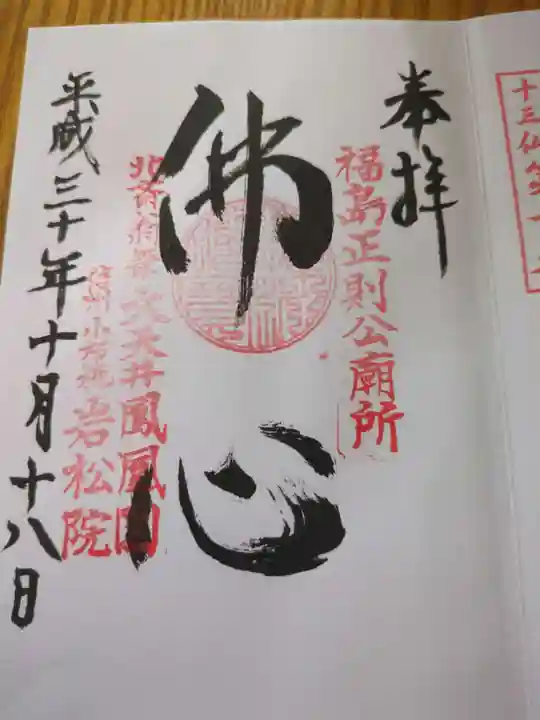 奉拝
福島正則公廟所
佛心
北斎肖像大天井鳳凰図
信州小布施 岩松院
平成三十年十月十八日